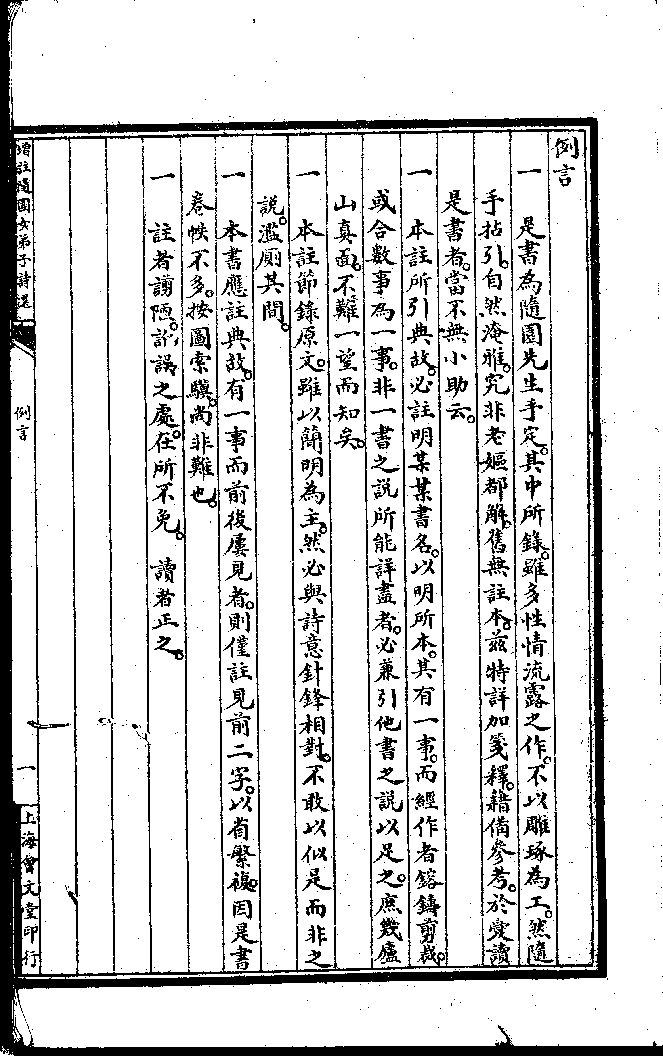 例言
一　是書為隨園先生手定。其中所錄。雖多性情流露之作。不以雕琢為工。然隨
手拈引。自然淹雅。究非老嫗都解。舊無註本。茲特詳加箋釋。藉備參考。於愛讀
是書者。當不無小助云。
一　本註所引典故。必註明某某書名。以明所本。其有一事。而經作者鎔鑄剪裁。
或合數事為一事。非一書之說所能詳盡者。必兼引他書之說以足之。庶幾廬
山真面。不難一望而知矣。
一　本註節錄原文。雖以簡明為主。然必與詩意針鋒相對。不敢以似是而非之
說。濫廁其間。
一　本書應註典故。有一事而前後屢見者。則僅註見前二字。以省繁複。因是書
卷帙不多。按圖索驥。尚非難也。
一　註者謭陋。訛誤之處。在所不免。　讀者正之。
增註隨園女弟子詩選
例言
一
上海會文堂印行